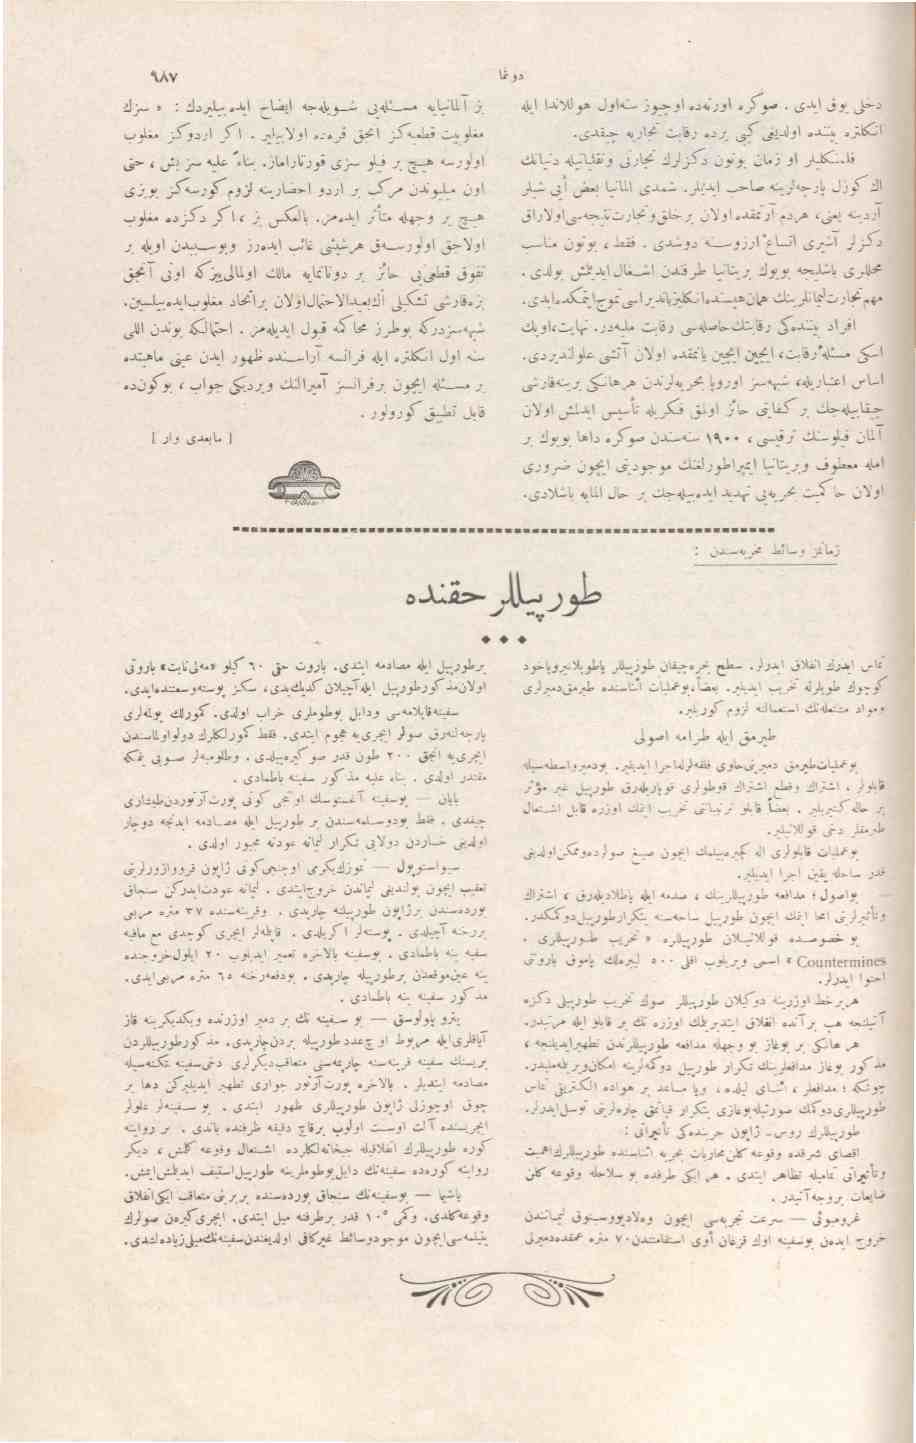 دوغا
٩٨٧
دخلی یوق ایدی . صوکره اورته‌ده اوچیوز سنه‌اول هوللاندا ایله
انکلتره بیننده اولدیغی کبی برده رقابت تجاریه چیقدی.
فلمنکلیلر او زمان بوتون دکزلرك تجارتی ونقلیاتیله دنیانك
اك کوزل پارچه‌لرینه صاحب ایدیلر. شمدی المانیا بعض آیی شیلر
آردینه یعنی، هردم آرتمقده اولان برخلق وتجارت نتیجه‌سی اولاراق
دکزلر آشیری اتساع ارزوسنه دوشدی . فقط ، بوتون مناسب
محللری باشلیجه بویوك بریتانیا طرفندن اشغال ایدیلمش بولدی .
مهم تجارت لیمانلرینك همان هپسنده انکلیز باندیراسی تموج ایتمکده ایدی.
افراد بیننده‌کی رقابتك حاصله‌سی رقابت ملیه‌در. نهایت، اویك
اسکی مسئله رقابت، ایچین ایچین یانمقده اولان آتشی علولندیردی.
اساس اعتباریله، شبهه‌سز اوروپا بحریه‌لرندن هرهانکی برینه قارشی
چیقابیله‌جك بر کفایتی حائز اولمق فکریله تأسیس ایدلمش اولان
آلمان فیلوسنك ترقیسی ، ١٩٠٠ سنه‌سندن صوکره داها بویوك بر
امله معطوف وبریتانیا ایمپراطورلغنك موجودیتی ایچون ضروری
اولان حاکمیت بحریه‌یی تهدید ایده‌بیله‌جك بر حال المایه باشلادی.
بز آلمانیایه مسئله‌یی شویله‌جه ایضاح ایده‌بیلیردك : « سزك
مغلوبیت قطعیه‌کز انجق قره‌ده اولابیلیر . اکر اردوکز مغلوب
اولورسه هیچ بر فیلو سزی قورتاراماز. بناء علیه سز بش ، حتی
اون میلیوندن مرکب بر اردو احضارینه لزوم کورسه‌کز بویزی
هیچ بر وجهله متأثر ایده‌مز. بالعکس بز ، اکر دکزده مغلوب
اولاجق اولورسه‌ق هرشیئی غائب ایده‌رز وبوسببدن اویله بر
تفوق قطعی‌یی حائز بر دونانمایه مالك اولمالی‌ییزکه اونی آنجق
بزه‌قارشی تشکلی اك‌بعیدالاحتمال اولان براتحاد مغلوب‌ایده‌بیلسین.
شبهه‌سزدرکه بوطرز محاکمه قبول ایدیله‌مز . احتمالکه بوندن اللی
سنه اول انکلتره ایله فرانسه آراسنده ظهور ایدن عینی ماهیتده
بر مسئله ایچون برفرانسز آمیرالنك ویردیکی جواب ، بوکون‌ده
قابل تطبیق کورولور .
[ مابعدی وار ]
زمانمز وسائط مخربه‌سندن :
طورپیللر حقنده
تماس ایدرك انفلاق ایدرلر. سطح بحره‌چیقان طورپیللر یاطوپلانیر ویاخود
کوچوك طوپلرله تخریب ایدیلیر. بعضاً، بوعملیات اثناسنده طیرمق دمیرلری
ومواد مشتعله‌نك استعمالنه لزوم کوریلیر.
طیرمق ایله طرامه اصولی
بوعملیات طیرمق دمیرینی حاوی فلفه‌لرله‌اجرا ایدیلیر. بودمیر واسطه‌سیله
قابلولر ، اشتراك وقطع اشتراك قوطولری قوپاریله‌رق طورپیل غیر مؤثر
بر حاله کتیریلیر . بعضاً قابلو ترتیباتنی تخریب ایتمك اوزره قابل اشتعال
طیرمقلر دخی قوللانیلیر.
بوعملیات قابلولری اله کچیره‌بیلمك ایچون صیغ صولرده وممکن اولدیغی
قدر ساحله یقین اجرا ایدیلیر.
بواصول ؛ مدافعه طورپیللرینك ، صدمه ایله پاطلادیله‌رق ، اشتراك
وتأثیرلرینی امحا ایتمك ایچون طورپیل ساحه‌سنه بتکرار طورپیل دوکمکدر.
بو خصوصده قوللانیلان طورپیللره « تخریب طورپیللری .
Countermines » اسمی ویریلوب اقلی ٥٠٠ لیبره‌لك پاموق باروتی
احتوا ایدرلر.
هربرخط اوزرینه دوکیلان طورپیللر صوك تخریب طورپیلی دکزه
آتیلنجه هپ برآنده انفلاق ایتدیریلمك اوزره تك بر قابلو ایله مرتبدر.
هر هانکی بر بوغاز بو وجهله مدافعه طورپیللرندن تطهیر ایدیلنجه ،
مذکور بوغاز مدافعلرینك تکرار طورپیل دوکمه‌لرینه امکان ویریله‌ملیدر.
چونکه ؛ مدافعلر ، اثنای لیلده ، ویا مساعد بر هواده الکتریقی تماس
طورپیللری دوکمك صورتیله بوغازی بتکرار قپاتمق چاره‌لرینی توسل ایدرلر.
طورپیللرك روس - ژاپون حربنده‌کی تأثیراتی :
اقصای شرقده وقوعه کلن محاربات بحریه اثناسنده طورپیللرك اهمیت
وتأثیراتی تمامیله تظاهر ایتدی . هر ایکی طرفده بو سلاحله وقوعه کلن
ضایعات بروجه آتیدر .
غروموبوئی — سرعت تجربه‌سی ایچون وه‌لادیووستوق لیمانندن
خروج ایدن بوسفینه اوك قزغان آوی استقامتندن ٧٠ متره عمقده دمیرلی
برطورپیل ایله مصادمه ایتدی. باروت حقی ٦٠ کیلو «مه‌لی‌نایت» باروتی
اولان مذکور طورپیل ایله آچیلان کدیك‌یدی، سکز پوسته وسعتنده‌ایدی.
سفینه قابلامه‌سی ودابل بوطوملری خراب اولدی. کمورلك بولمه‌لری
پارچه‌لنه‌رق صولر ایچری‌یه هجوم ایتدی. فقط کمورلکلرك دولو اولماسندن
ایچری‌یه انجق ٢٠٠ طون قدر صو کیره‌بیلدی . وطلومبه‌لر صویی یمکه
مقتدر اولدی . بناء علیه مذکور سفینه باطمادی .
بایان — بوسفینه آغستوسك اونجی کونی پورت آرتوردن طیشاری
چیقدی . فقط بودوسله‌سندن بر طورپیل ایله مصادمه ایدنجه دوچار
اولدیغی خساردن دولایی تکرار لیمانه عودته مجبور اولدی .
سیواستوپول — تموزك یکرمی اوچنجی کونی ژاپون قرووازورلرینی
تعقیب ایچون بولندیغی لیماندن خروج ایتدی . لیمانه عودت ایدرکن سنجاق
بوردهسندن برژاپون طورپیلنه چارپدی . وقرینه‌سنده ٣٧ متره مربعی
بررخنه آچیلدی . پوسته‌لر اکریلدی . قاپله‌لر ایچری کوچدی مع مافیه
سفینه ینه باطمادی . بوسفینه بالآخره تعمیر ایدیلوب ٢٠ ایلول خروجنده
ینه عین موقعدن برطورپیله چارپدی . بودفعه رخنه ٦٥ متره مربعی ایدی.
مذکور سفینه ینه باطمادی .
پترو پاولوسق — بو سفینه تك بر دمیر اوزرنده ویکدیکرینه قاز
آیاقلری ایله مربوط اوچ عدد طورپیله بردن چارپدی. مذکور طورپیللردن
بریسنك سفینه قرینه‌سنه چارپمه‌سی متعاقب دیکرلری دخی سفینه تکنه‌سیله
مصادمه ایتدیلر . بالآخره پورت آرتور جواری تطهیر ایدیلیرکن دها بر
چوق اوچوزلی ژاپون طورپیللری ظهور ایتدی . بو سفینه‌لر علولر
ایچریسنده آلت اوست اولوب برقاچ دقیقه ظرفنده باندی . بر روایته
کوره طورپیللرك انفلاقیله جبخانه‌لکلرده اشتعال وقوعه کلمش ، دیکر
روایته کوره‌ده سفینه‌نك دابل بوطوملرینه طورپیل استیف ایدیلمش ایمش.
یاشیما — بوسفینه‌نك سنجاق بوردهسنده بربرینی متعاقب ایکی انفلاق
وقوعه‌کلدی. وکمی ١٠° قدر برطرفنه میل ایتدی. ایچری کیره‌ن صولرك
یتیلمه‌سی ایچون موجود وسائط غیرکافی اولدیغندن سفینه‌نك میلی زیاده‌لشدی.